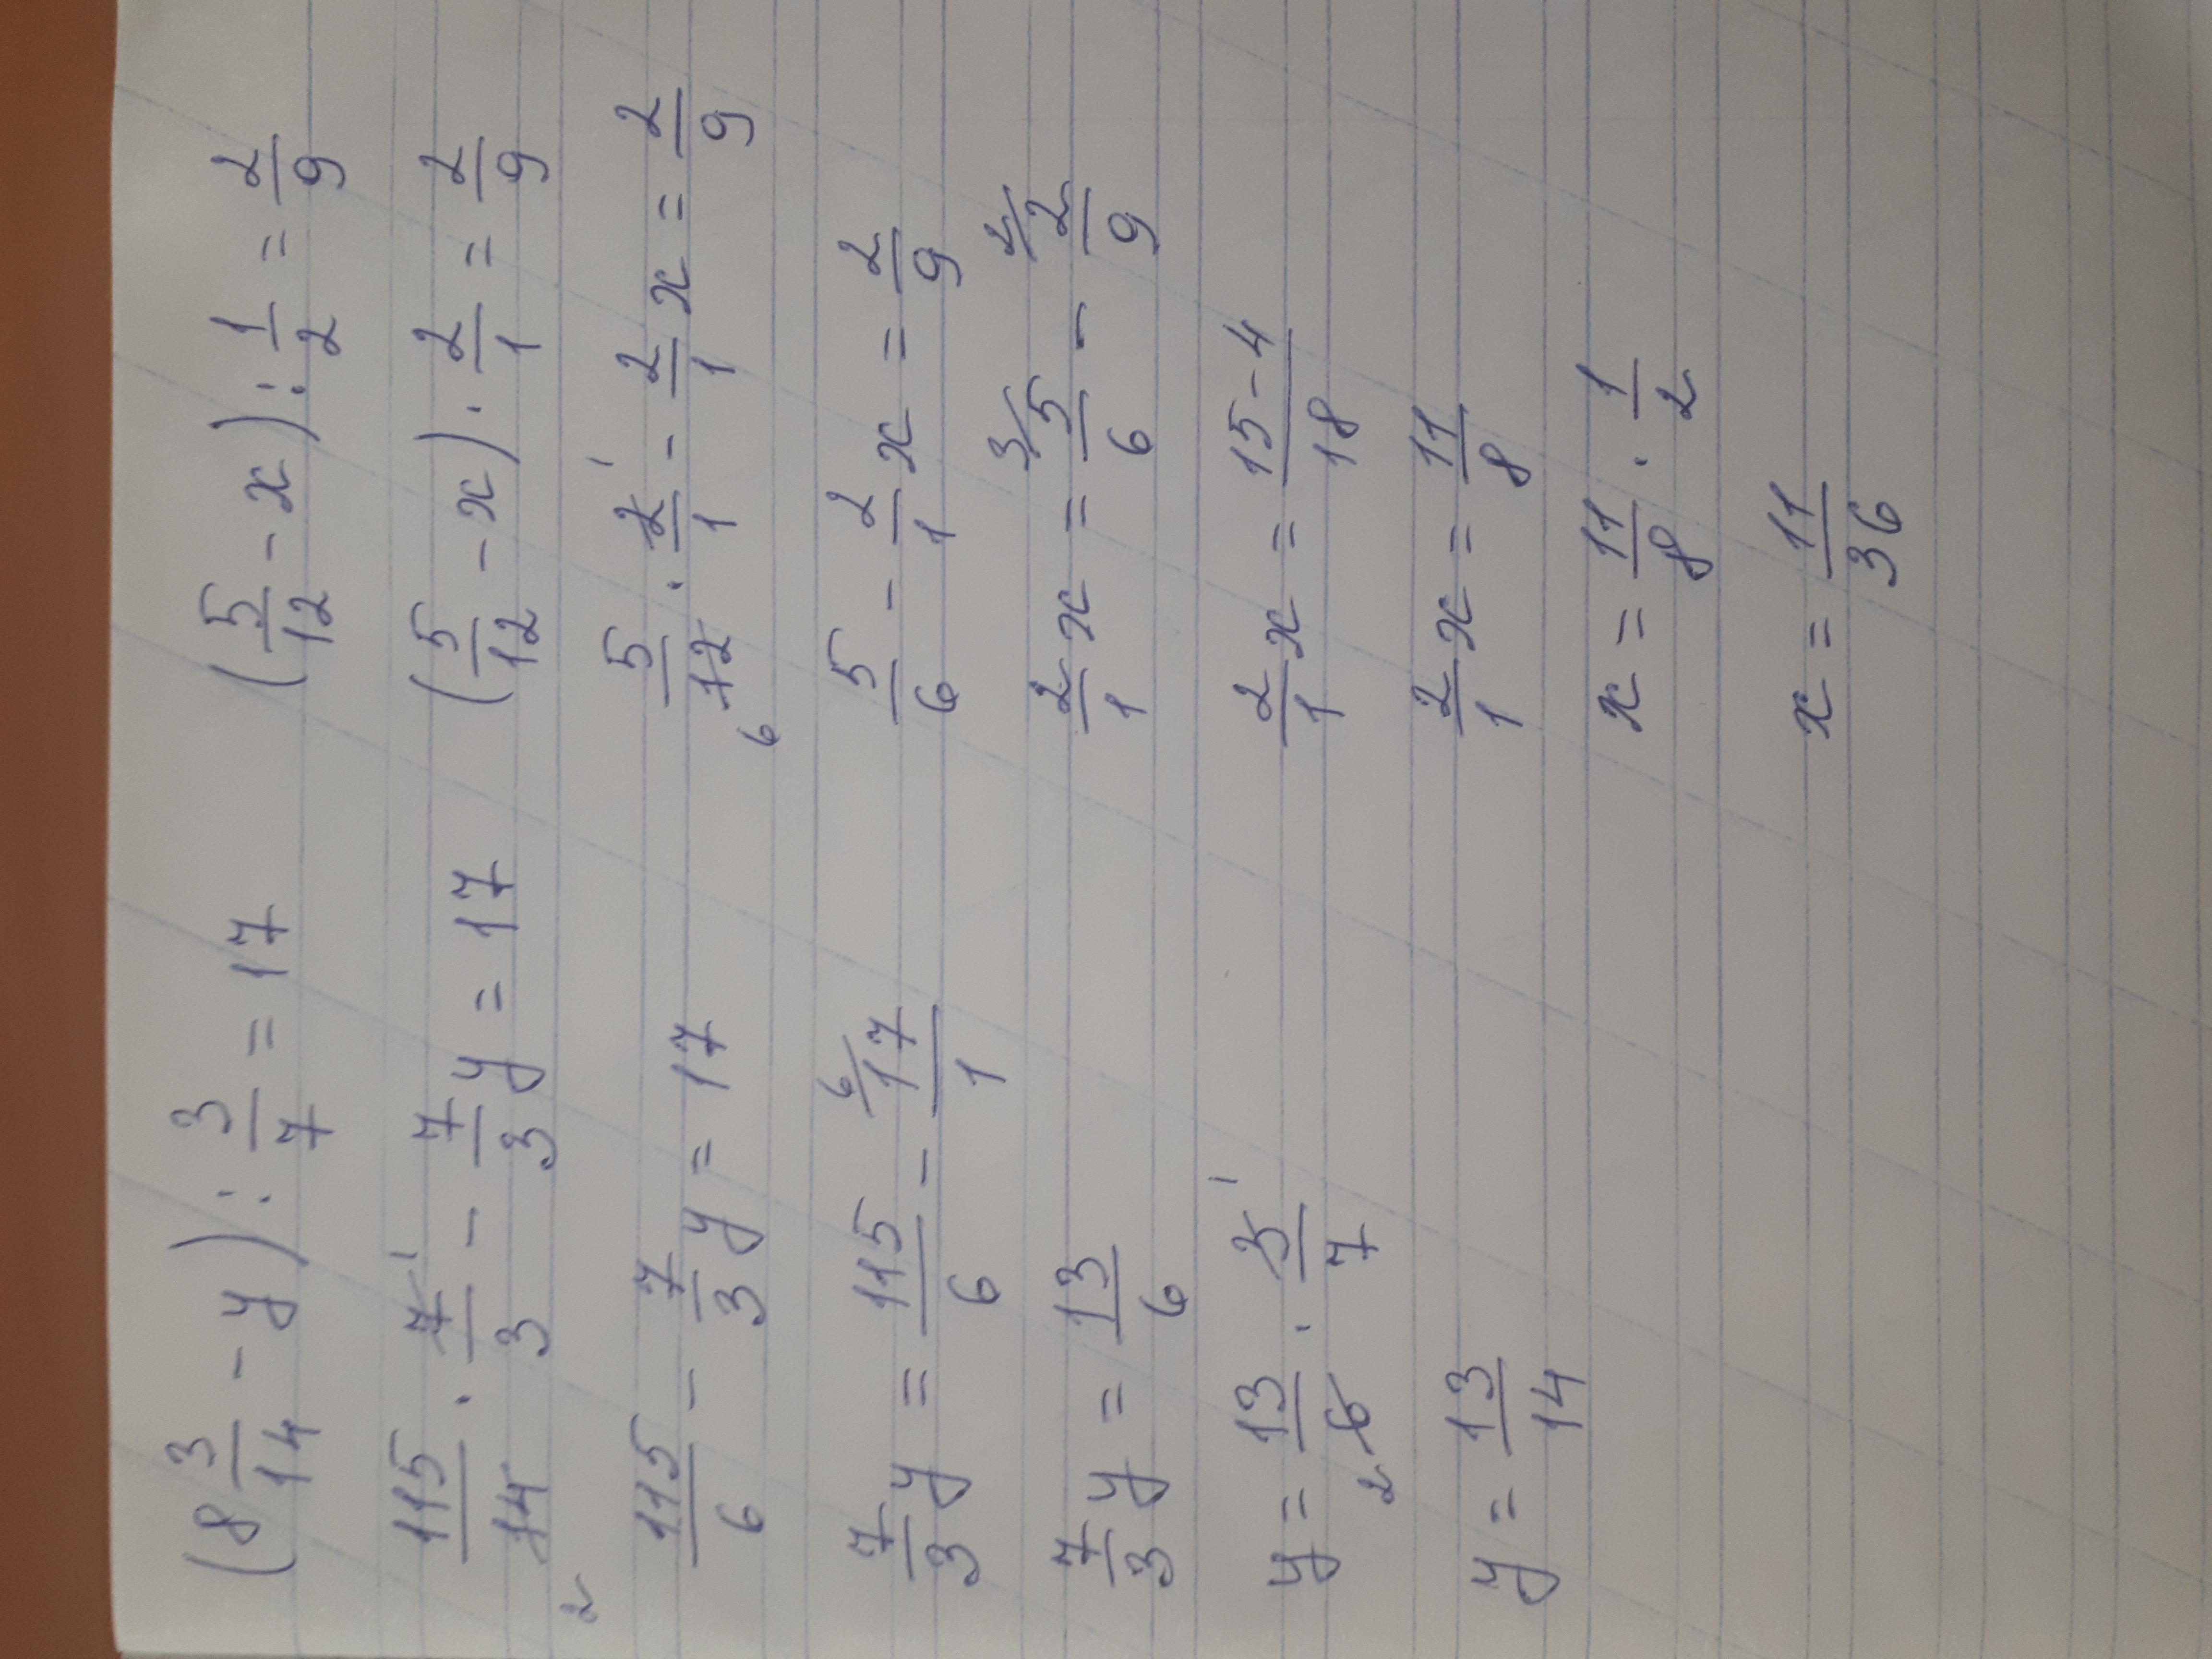 (8 3/14 - y) : 3/7 = 17
115/14 · 7/3 - 7/3 y = 17
2 1
115/6 - 7/3 y = 17
7/3 y = 115/6 - 6/ 17/1
7/3 y = 13/6
y = 13/6 · 3/7
2 1
y = 13/14
(5/12 - x) : 1/2 = 2/9
(5/12 - x) · 2/1 = 2/9
5/12 · 2/1 - 2/1 x = 2/9
6 1
5/6 - 2/1 x = 2/9
2/1 x = 3/ 5/6 - 2/ 2/9
2/1 x = 15-4/18
2/1 x = 11/8
x = 11/8 · 1/2
x = 11/36